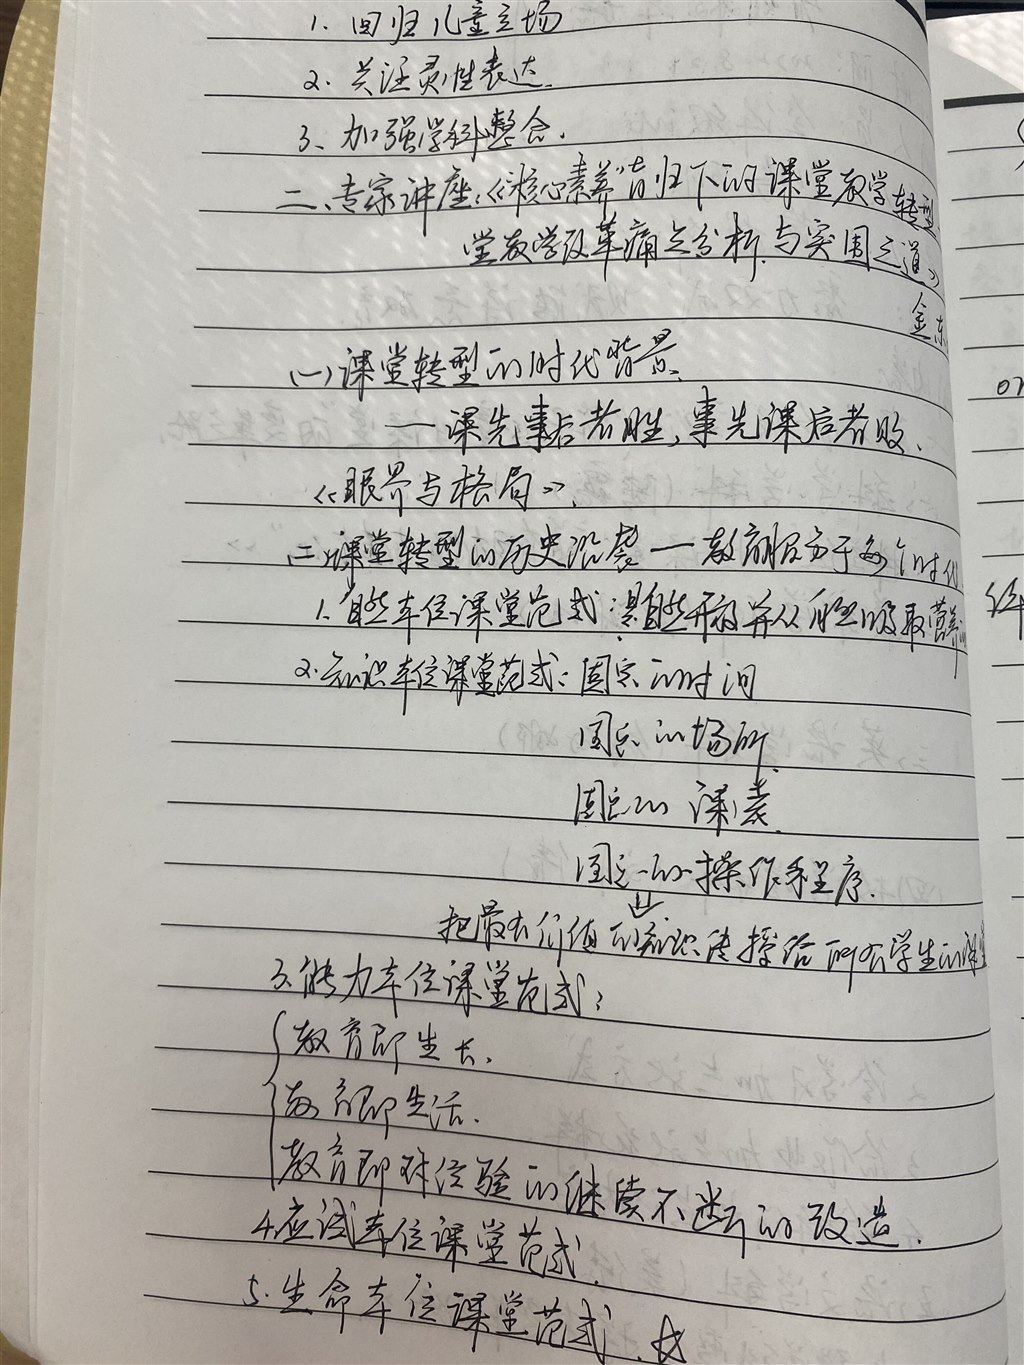 1. 回归儿童立场
2. 关注灵性表达.
3、加强学科整合.
二、专家讲座:《"核心素养"背归下的课堂教学转型
堂教学改革痛点分析与突围之道》
金东
(一)课堂转型的时代背景、
— 课先事后者胜,事先课后者败、
《眼界与格局》、
(二)课堂转型的历史沿袭 — 教育服务于每个时代
1. 自然本位课堂范式:是自然开放并从自然吸取营养
2. 知识本位课堂范式:固定的时间
固定的场所
固定的课表
固定的操作程序.
把最有价值的知识传授给所有学生的课堂
3. 能力本位课堂范式:
教育即生长、
教育即生活.
教育即对经验的继续不断的改造.
4. 应试本位课堂范式.
5. 生命本位课堂范式. ☆
or